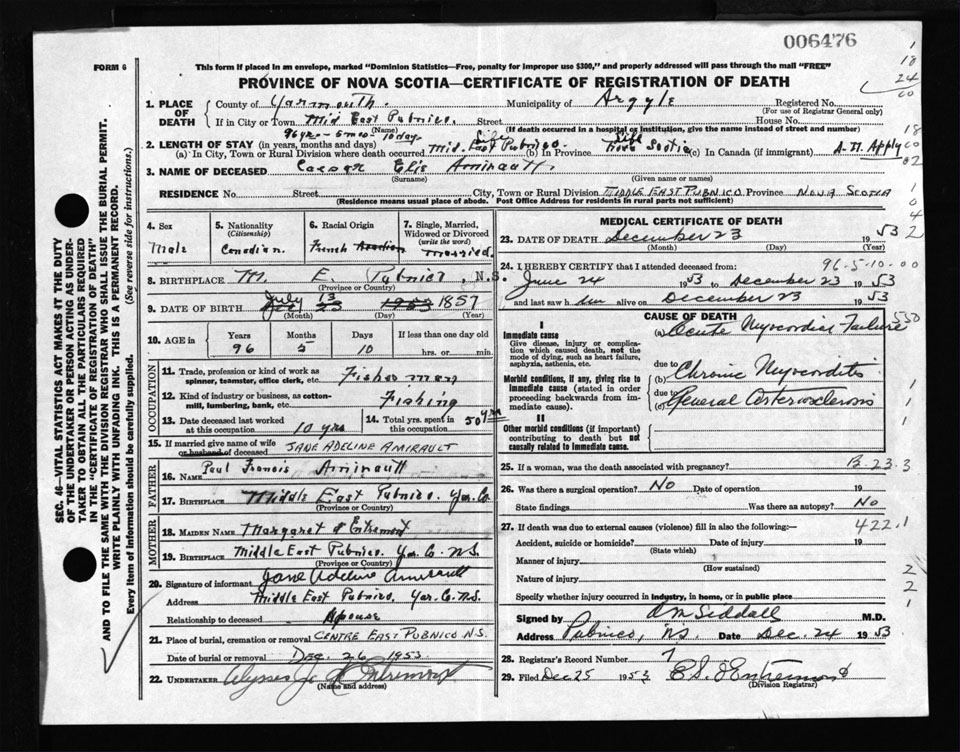 006476
FORM 6
This form if placed in an envelope, marked "Dominion Statistics—Free, penalty for improper use $300," and properly addressed will pass through the mail "FREE"
PROVINCE OF NOVA SCOTIA—CERTIFICATE OF REGISTRATION OF DEATH
1. PLACE OF DEATH County of Yarmouth. Municipality of Argyle Registered No.
(For use of Registrar General only)
If in City or Town Mid East Pubnico. Street House No.
(Name) (If death occurred in a hospital or institution, give the name instead of street and number)
96 yrs - 5 mos 10 days Life Life
2. LENGTH OF STAY (in years, months and days)
(a) In City, Town or Rural Division where death occurred Mid. East Pubnico (b) In Province Nova Scotia (c) In Canada (if immigrant)
3. NAME OF DECEASED Caesar Elie Amirault.
(Surname) (Given name or names)
RESIDENCE No. Street City, Town or Rural Division MIDDLE EAST PUBNICO Province NOVA SCOTIA
(Residence means usual place of abode. Post Office Address for residents in rural parts not sufficient)
4. Sex Male
5. Nationality (Citizenship) Canadian.
6. Racial Origin French Acadian
7. Single, Married, Widowed or Divorced (write the word) Married.
8. BIRTHPLACE M. E. Pubnico, N.S.
(Province or Country)
July 13
9. DATE OF BIRTH Dec 23 1953 1857
(Month) (Day) (Year)
10. AGE IN Years Months Days If less than one day old
96 5 10 hrs. or min.
OCCUPATION
11. Trade, profession or kind of work as spinner, teamster, office clerk, etc. Fisherman
12. Kind of industry or business, as cotton-mill, lumbering, bank, etc. Fishing
13. Date deceased last worked at this occupation 10 yrs
14. Total yrs. spent in this occupation 50 yrs
15. If married give name of wife or husband of deceased JANE ADELINE AMIRAULT
FATHER
16. NAME Paul Francis Amirault
17. BIRTHPLACE Middle East Pubnico. Yar. Co.
(Province or Country)
MOTHER
18. MAIDEN NAME Margaret d'Entremont
19. BIRTHPLACE Middle East Pubnico. Yar. Co. N.S.
(Province or Country)
20. Signature of informant Jane Adeline Amirault
Address Middle East Pubnico. Yar. Co. N.S.
Relationship to deceased Spouse
21. Place of burial, cremation or removal CENTRE EAST PUBNICO N.S.
Date of burial or removal DEC. 26 1953.
22. UNDERTAKER Ulysses J. d'Entremont
(Name and address)
MEDICAL CERTIFICATE OF DEATH
23. DATE OF DEATH December 23 1953
(Month) (Day) (Year)
96-5-10-00
24. I HEREBY CERTIFY that I attended deceased from:
June 24 1953 to December 23 1953
and last saw him alive on December 23 1953
CAUSE OF DEATH
I
Immediate cause
Give disease, injury or complication which caused death, not the mode of dying, such as heart failure, asphyxia, asthenia, etc.
(a) Acute Myocardial Failure
Morbid conditions, if any, giving rise to immediate cause (stated in order proceeding backwards from immediate cause).
due to (b) Chronic Myocarditis
due to (c) General Arteriosclerosis
II
Other morbid conditions (if important) contributing to death but not causally related to immediate cause.
25. If a woman, was the death associated with pregnancy? B-23-3
26. Was there a surgical operation? No Date of operation 19
State findings Was there an autopsy? No
27. If death was due to external causes (violence) fill in also the following:— 422.1
Accident, suicide or homicide? Date of injury 19
(State which)
Manner of injury
(How sustained)
Nature of injury
Specify whether injury occurred in industry, in home, or in public place
Signed by A M Siddall M.D.
Address Pubnico, N.S. Date Dec. 24 1953
28. Registrar's Record Number 7
29. Filed Dec 25 1953
(Division Registrar)
SEC. 46—VITAL STATISTICS ACT MAKES IT THE DUTY
OF THE UNDERTAKER OR PERSON ACTING AS UNDER-
TAKER TO OBTAIN ALL THE PARTICULARS REQUIRED
IN THE "CERTIFICATE OF REGISTRATION OF DEATH"
AND TO FILE THE SAME WITH THE DIVISION REGISTRAR WHO SHALL ISSUE THE BURIAL PERMIT.
WRITE PLAINLY WITH UNFADING INK. THIS IS A PERMANENT RECORD.
Every item of information should be carefully supplied. (See reverse side for instructions.)